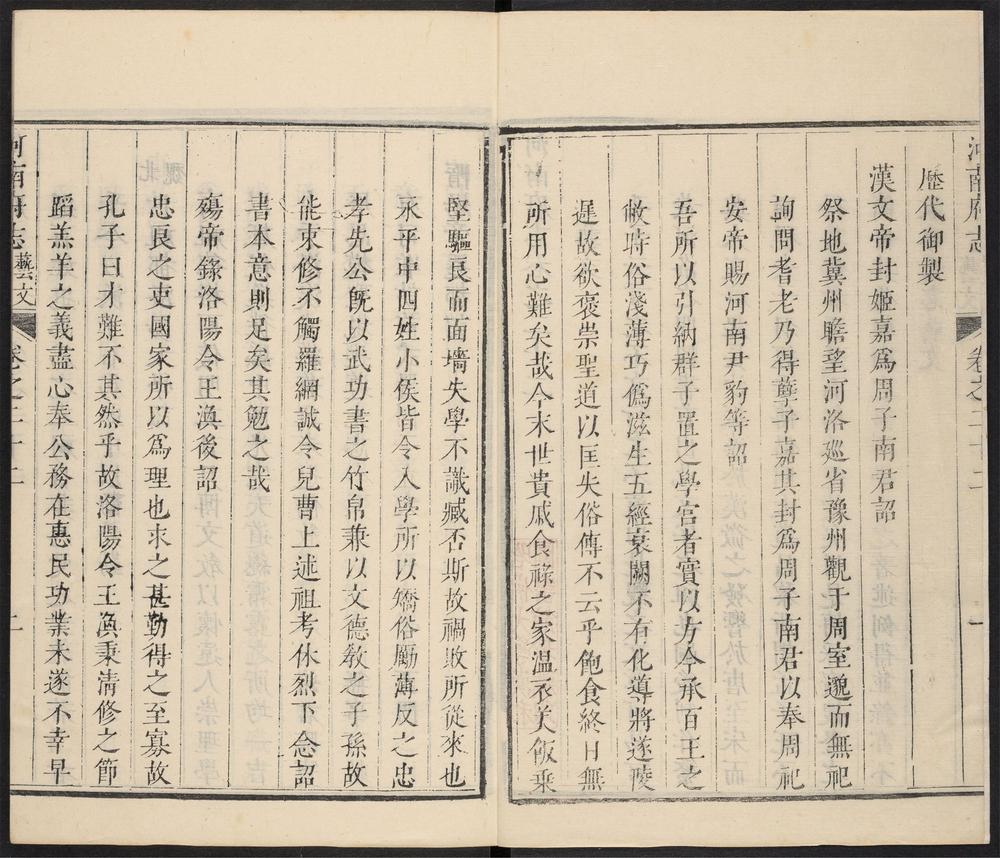 河南府志 卷之二十二 一
歷代御製
漢文帝封姬嘉爲周子南君詔
祭地冀州瞻望河洛廵省豫州觀于周室邈而無祀
詢問耆老乃得孽子嘉其封爲周子南君以奉周祀
安帝賜河南尹豹等詔
吾所以引納群子置之學官者實以方今承百王之
敝時俗淺薄巧僞滋生五經衰闕不有化導將遂陵
遲故欲褒崇聖道以匡失俗傳不云乎飽食終日無
所用心難矣哉今末世貴戚食祿之家温衣美飯乘
堅驅良而面墻失學不識臧否斯故禍敗所從來也
永平中四姓小侯皆令入學所以矯俗厲薄反之忠
孝先公旣以武功書之竹帛兼以文德敎之子孫故
能束修不觸羅網誠令兒曹上述祖考休烈下念詔
書本意則足矣其勉之哉
殤帝錄洛陽令王渙後詔
忠良之吏國家所以爲理也求之甚勤得之至寡故
孔子曰才難不其然乎故洛陽令王渙秉清修之節
蹈羔羊之義盡心奉公務在惠民功業未遂不幸早
河南府志藝文 卷之二十二 二